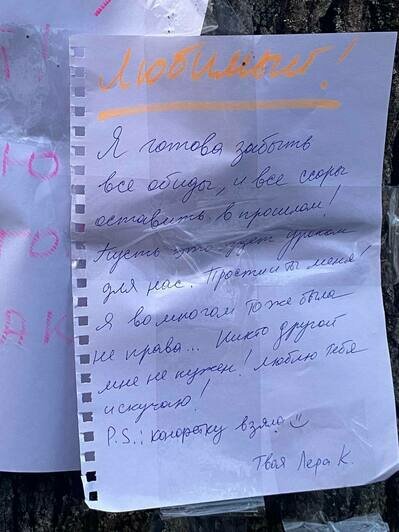 Любимый!
Я готова забыть
все обиды, и все ссоры
оставить в прошлом!
Пусть это будет уроком
для нас. Прости и ты меня!
Я во многом тоже была
не права... Никто другой
мне не нужен! Люблю тебя
и скучаю!
P.S.: конфетку взяла
Твоя Лера К.
Ю